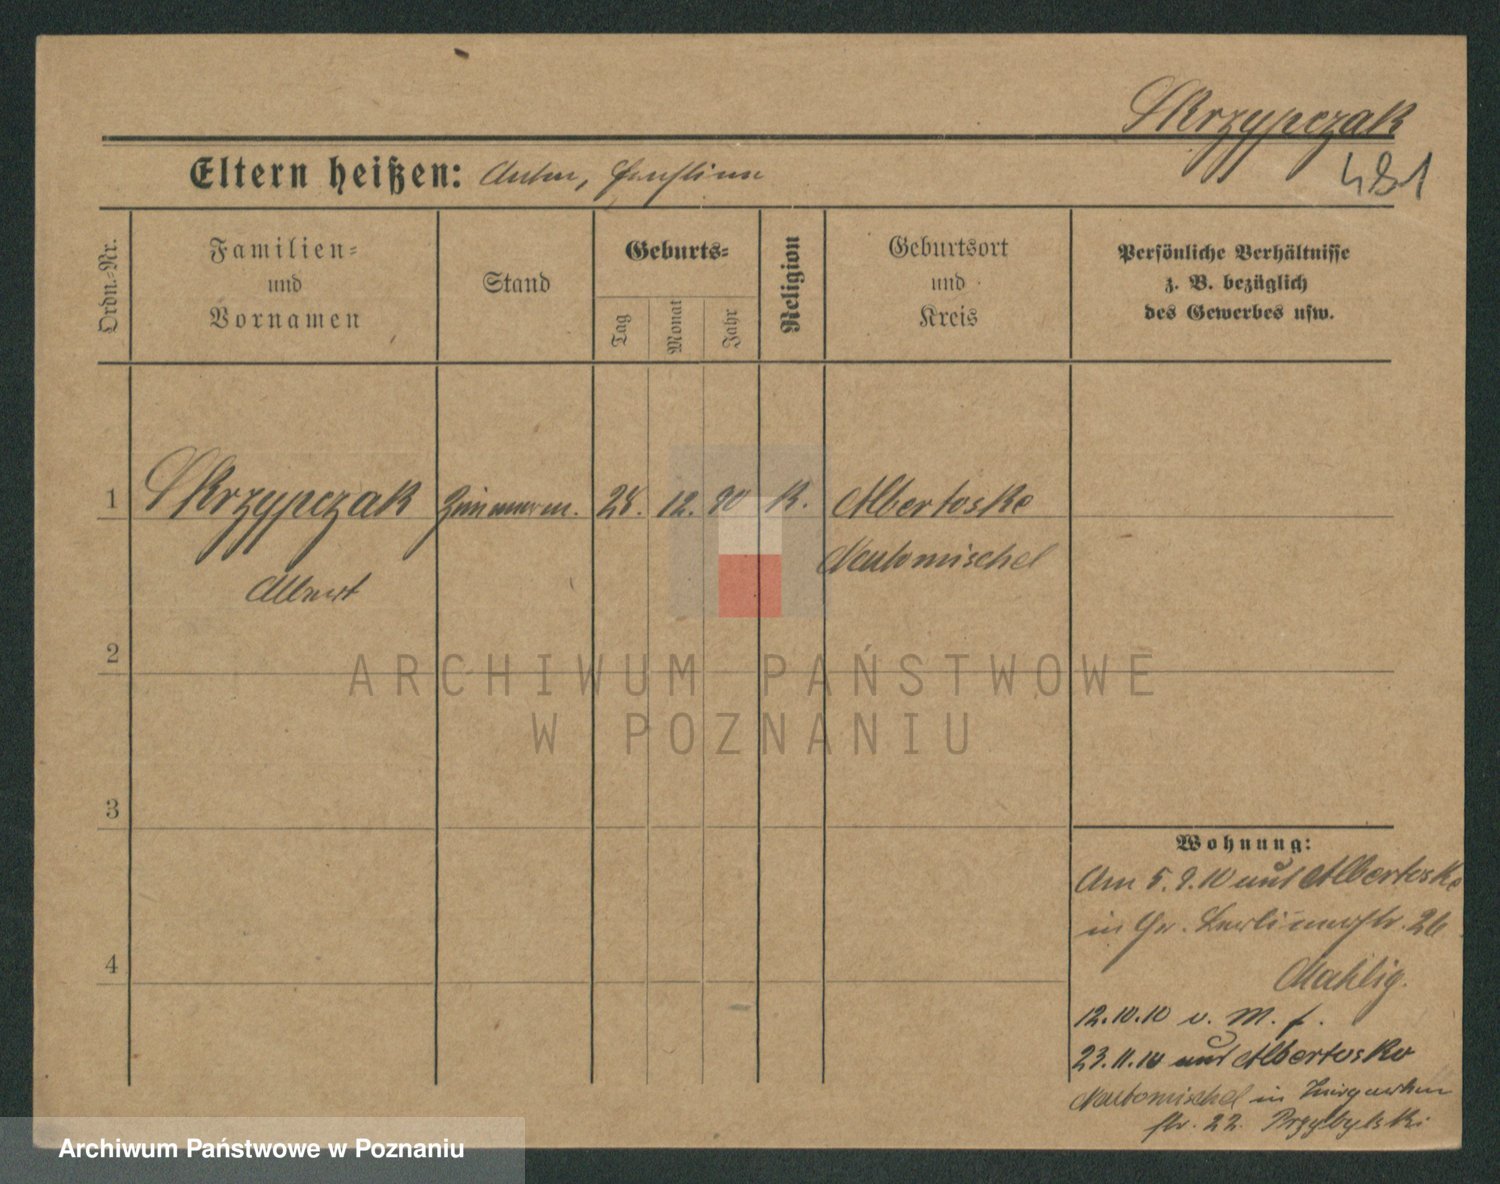 Skrzypczak
481
Eltern heißen: Anton,
Ordn.=Nr.
Familien=
und
Vornamen
Stand
Geburts=
Tag
Monat
Jahr
Religion
Geburtsort
und
Kreis
Persönliche Verhältnisse
z. B. bezüglich
des Gewerbes usw.
1 Skrzypczak Zimmerm. 28. 12. 90 K. Albertoske
Neutomischel
Albert
2
ARCHIWUM PAŃSTWOWE
W POZNANIU
3
Wohnung:
Am 5.9.10 aus Albertoske
in Gr. Berlinerstr. 26
Mahlig.
4
12.10.10 v. M. f.
23.11.10 aus Albertosko
Neutomischel in
str. 22. Przybylski
Archiwum Państwowe w Poznaniu